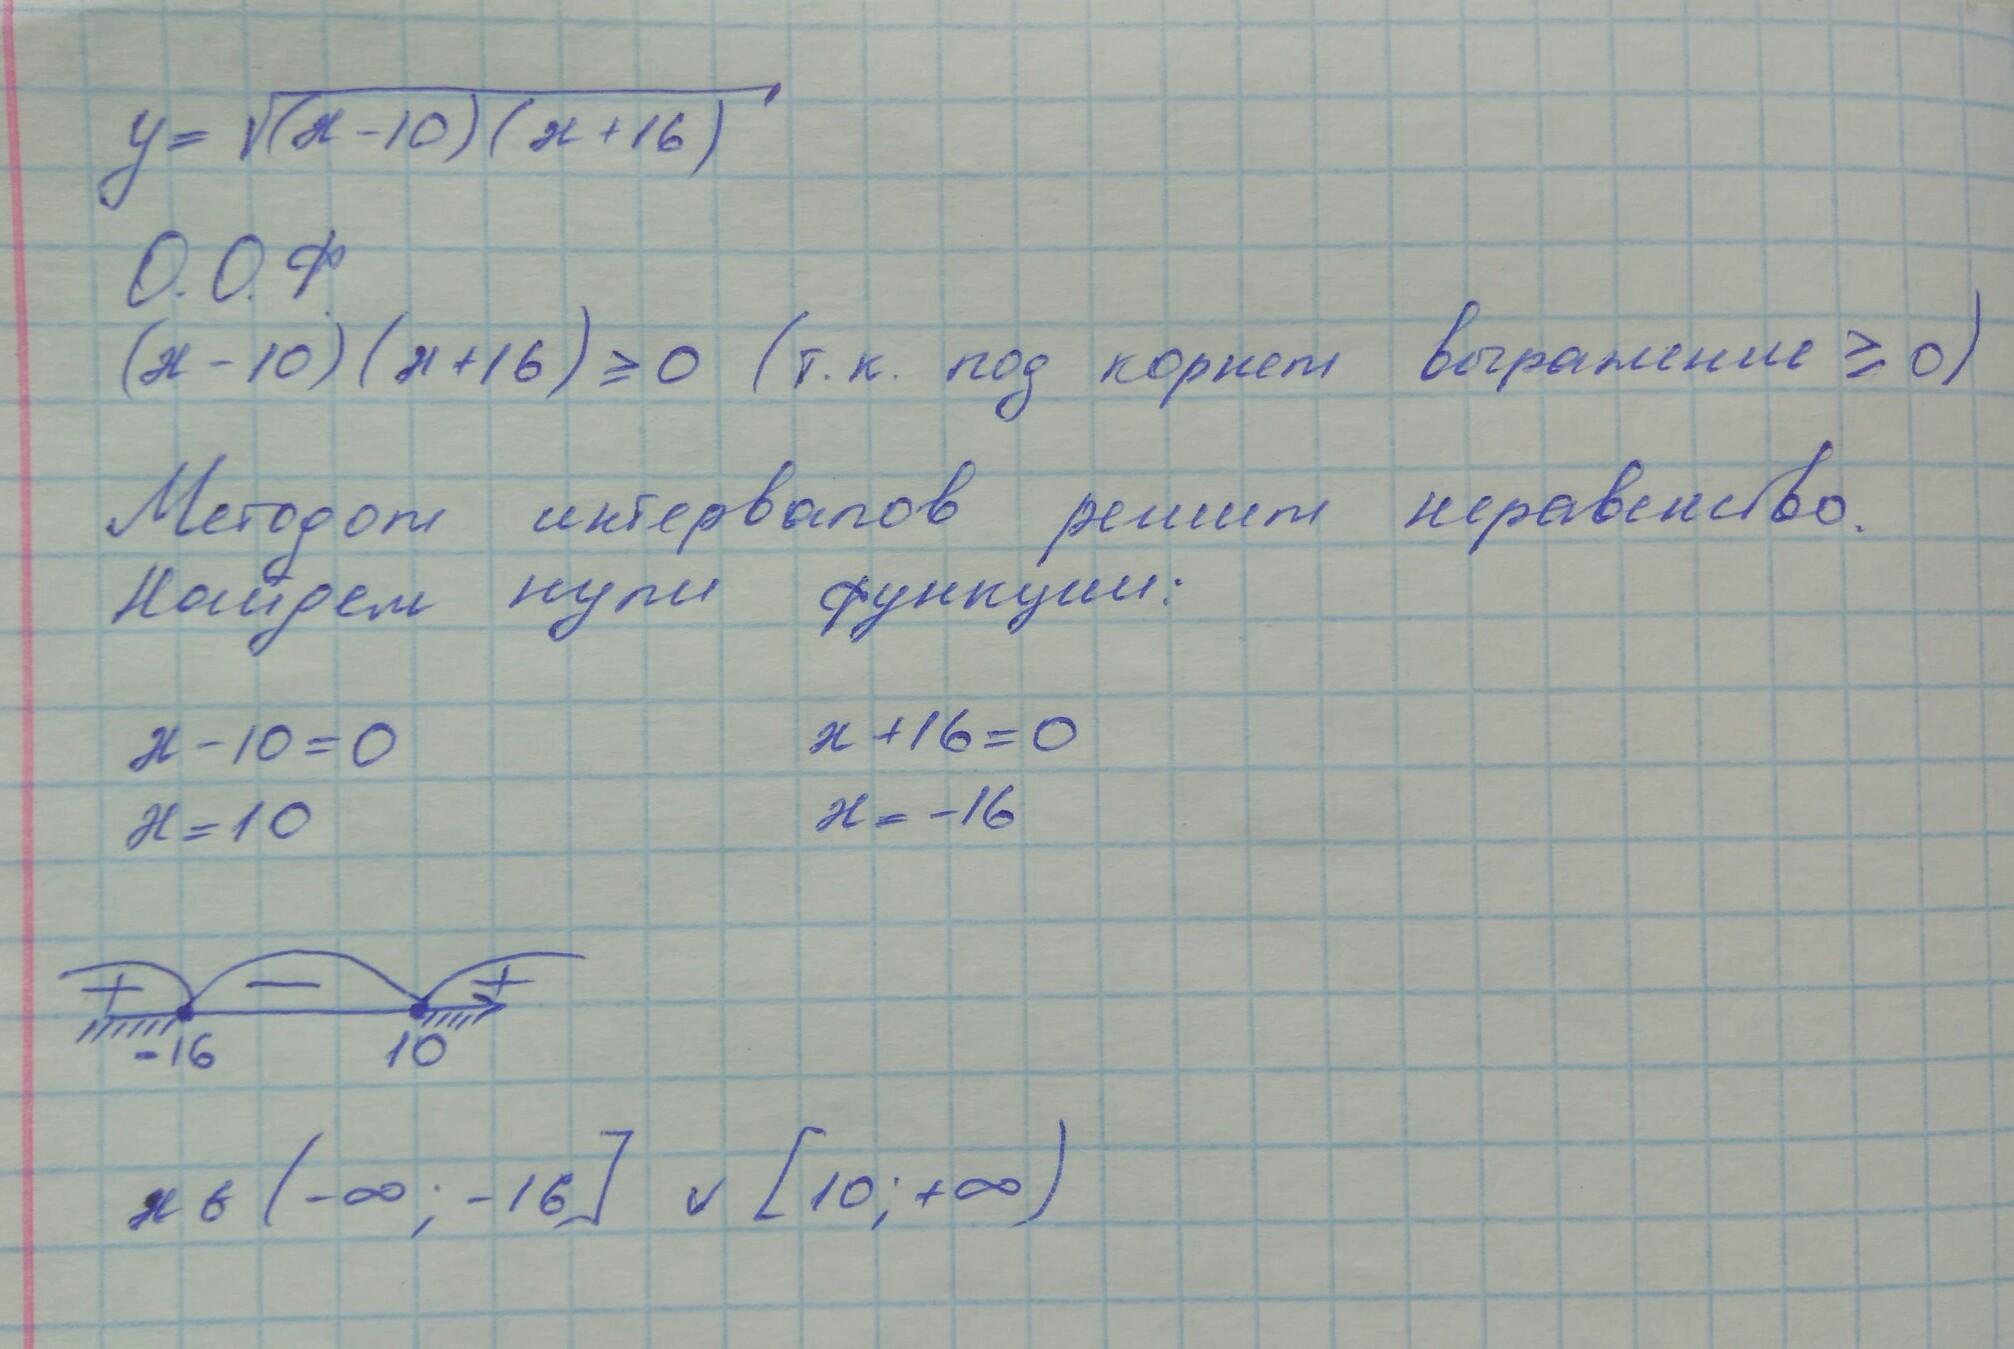 y = √(x-10)(x+16)
О.О.Ф.
(x-10)(x+16) ≥ 0 (т.к. под корнем выражение ≥ 0)
Методом интервалов решим неравенство.
Найдем нули функции:
x-10=0 x+16=0
x=10 x=-16
+ − +
-16 10
x ∈ (-∞; -16] ∨ [10; +∞)